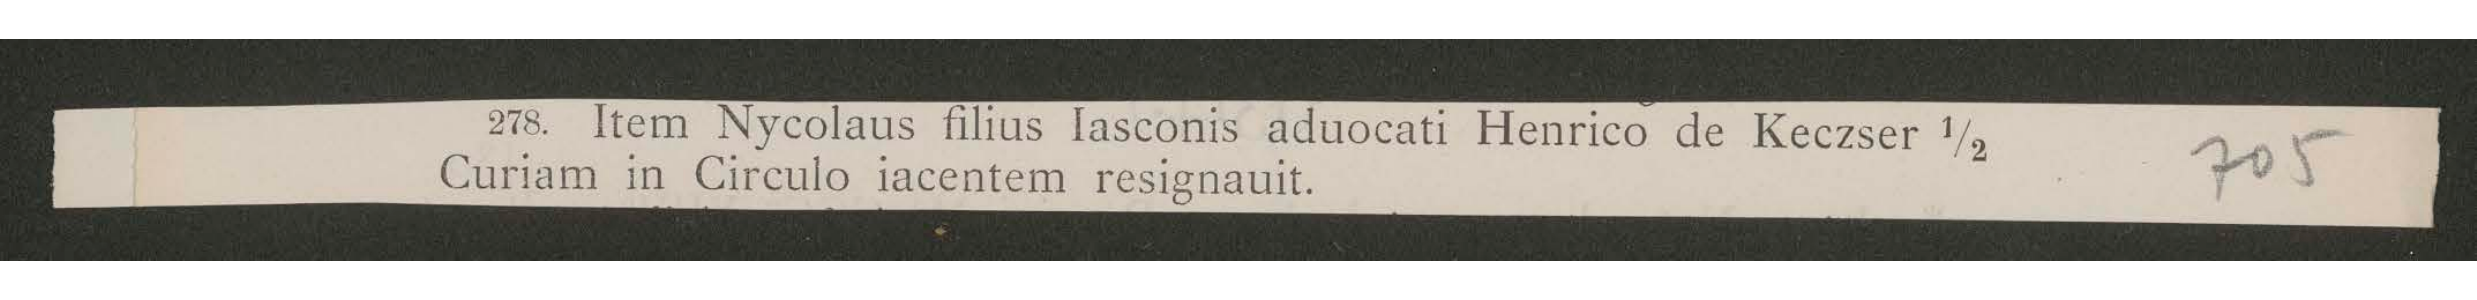 278. Item Nycolaus filius Iasconis aduocati Henrico de Keczser 1/2
Curiam in Circulo iacentem resignauit.
705